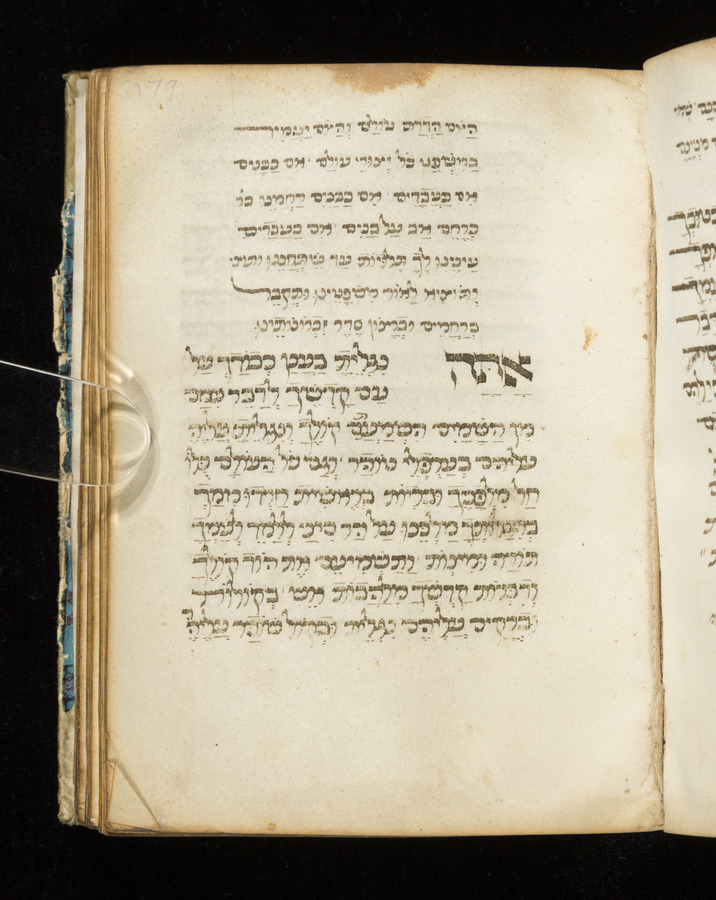 היום הרת עולם והיום יעמיד
במשפט כל יצורי עולם אם כבנים
אם כעבדים אם כבנים רחמינו כר
כרחם אב על בנים אם כעבדים
עינינו לך תלויות עד שתחננו ותוצ
ותוציא לאור משפטינו ותקבל
ברחמים וברצון סדר זכרונותינו
אתה נגלית בענן כבודך על
עם קדשך לדבר עמם
מן השמים השמעתם קולך ונגלית עליה
עליהם בערפלי טוהר וגם כל העולם כלו
חל מלפניך ובריות בראשית חרדו ממך
בהגלותך מלכנו על הר סיני ללמד לעמך
תורה ומצות ותשמיעם את הוד קולך
ודברות קדשך מלהבות אש בקולות
וברקים עליהם נגלית ובקול שופר עליה